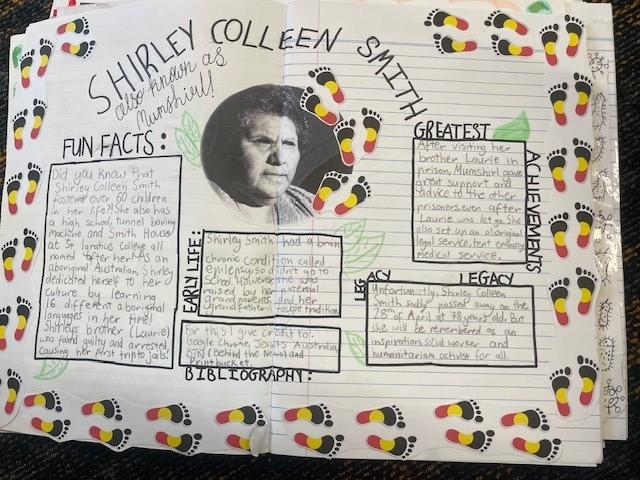 SHIRLEY COLLEEN SMITH
also known as
Mumshirl!
FUN FACTS:
Did you know that
Shirley Colleen Smith
fostered over 60 children
in her life?! She also has
a high school, tunnel boring
machine and Smith House
at St Ignatius College all
named after her. As an
aboriginal Australian, Shirley
dedicated herself to her
culture by learning
16 different aboriginal
languages in her time!
Shirleys brother (Laurie)
was found guilty and arrested,
causing her first trip to jails!
EARLY LIFE:
Shirley Smith had a brain
chronic condition called
epilepsy, so didn't go to
school. However, she was
raised by her maternal
grandparents, and her
grandfather taught tradition
For this I give credit to:
Google Chrome, Jesuits Australia,
BTN (Behind the News) and
Printbucket.
BIBLIOGRAPHY:
GREATEST
ACHIEVEMENTS
After visiting her
brother Laurie in
prison, Mumshirl gave
great support and
advice to the other
prisoners, even after
Laurie was let go. She
also set up an aboriginal
legal service, tent embassy
medical service.
LEGACY
LEGACY
Unfortunatly, Shirley Colleen
Smith sadly passed away on the
28th of April at 78 years old. But
she will be remembered as an
inspiration, solid worker and
humanitarian activist for all.